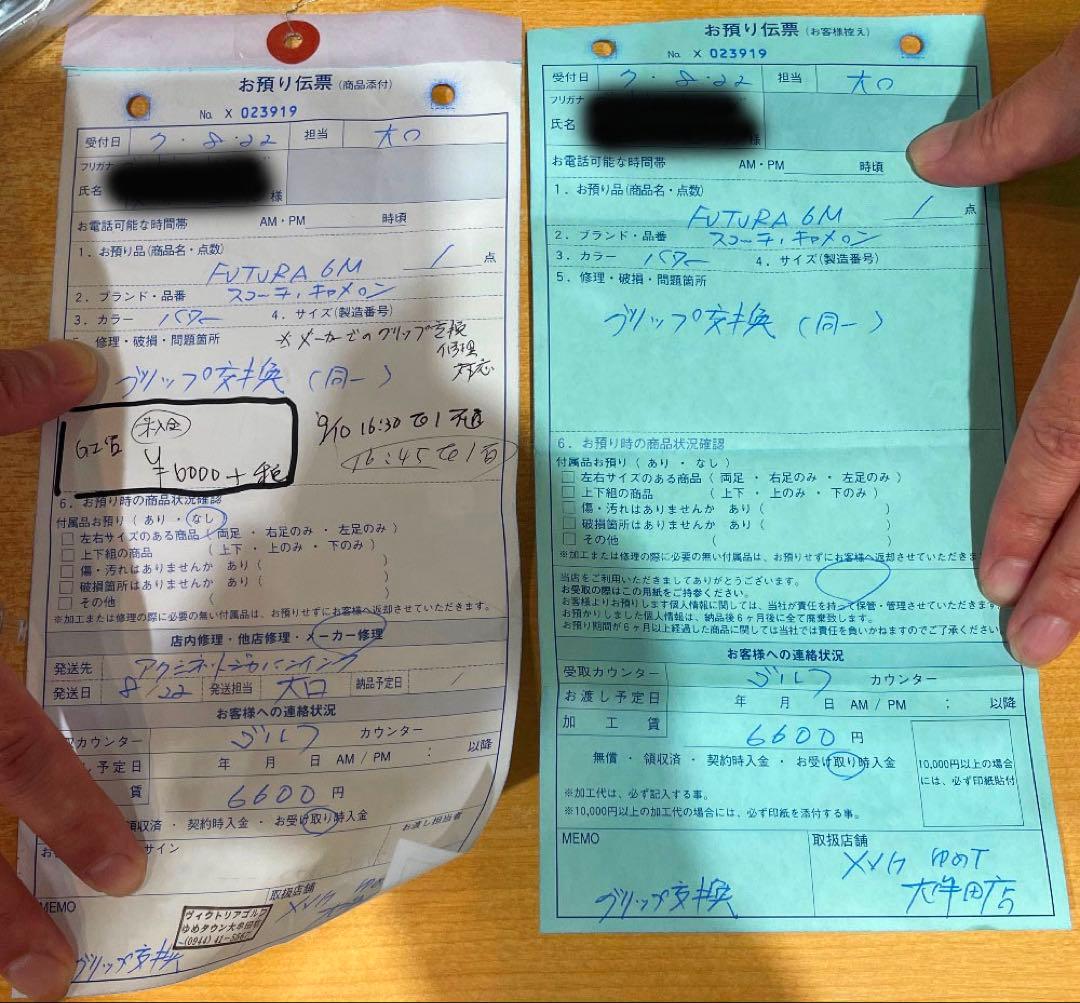 お預り伝票 (商品添付)
No. X 023919
受付日 7・8・22 担当 大口
フリガナ
氏名 様
お電話可能な時間帯 AM・PM 時頃
1. お預り品(商品名・点数)
FUTURA 6M 1 点
2. ブランド・品番 スコーティ・キャメロン
3. カラー パター 4. サイズ(製造番号)
修理・破損・問題箇所 ※メーカーでのグリップ交換
修理
対応
グリップ交換 (同一)
未入金
¥6000+税
9/10 16:30 で1
16:45 で1
6. お預り時の商品状況確認
付属品お預り ( あり ・ なし )
左右サイズのある商品 ( 両足 ・ 右足のみ ・ 左足のみ )
上下組の商品 ( 上下 ・ 上のみ ・ 下のみ )
傷・汚れはありませんか あり ( )
破損箇所はありませんか あり ( )
その他 ( )
※加工または修理の際に必要の無い付属品は、お預りせずにお客様へ返却させていただきます
店内修理・他店修理・メーカー修理
発送先 アクシネットジャパンインク
発送日 8/22 発送担当 大口 納品予定日 /
お客様への連絡状況
取カウンター ゴルフ カウンター
渡し予定日 年 月 日 AM / PM : 以降
賃 6600 円
領収済 ・ 契約時入金 ・ お受け取り時入金
サイン お渡し担当者
取扱店舗
MEMO
ヴィクトリアゴルフ
ゆめタウン大牟田店
グリップ交換
お預り伝票 (お客様控え)
No. X 023919
受付日 7・8・22 担当 大口
フリガナ
氏名 様
お電話可能な時間帯 AM・PM 時頃
1. お預り品(商品名・点数)
FUTURA 6M 1 点
2. ブランド・品番 スコーティ・キャメロン
3. カラー パター 4. サイズ(製造番号)
5. 修理・破損・問題箇所
グリップ交換 (同一)
6. お預り時の商品状況確認
付属品お預り ( あり ・ なし )
左右サイズのある商品 ( 両足 ・ 右足のみ ・ 左足のみ )
上下組の商品 ( 上下 ・ 上のみ ・ 下のみ )
傷・汚れはありませんか あり (
破損箇所はありませんか あり (
その他 (
※加工または修理の際に必要の無い付属品は、お預りせずにお客様へ返却させていただきま
当店をご利用いただきましてありがとうございます。
お受取の際はこの用紙をご持参ください。
お客様よりお預りします個人情報に関しては、当社が責任を持って保管・管理させていただきます
お預かりしました個人情報は、納品後6ヶ月後に全て廃棄致します。
お預り期間が6ヶ月以上経過した商品に関しては当社では責任を負いかねますのでご了承ください。
お客様への連絡状況
受取カウンター ゴルフ カウンター
お渡し予定日 年 月 日 AM / PM : 以降
加工賃 6600 円
無償 ・ 領収済 ・ 契約時入金 ・ お受け取り時入金
10,000円以上の場合
には、必ず印紙貼付
※加工代は、必ず記入する事。
※10,000円以上の加工代の場合には、必ず印紙を添付する事。
MEMO 取扱店舗
グリップ交換 ゆめT
大牟田店